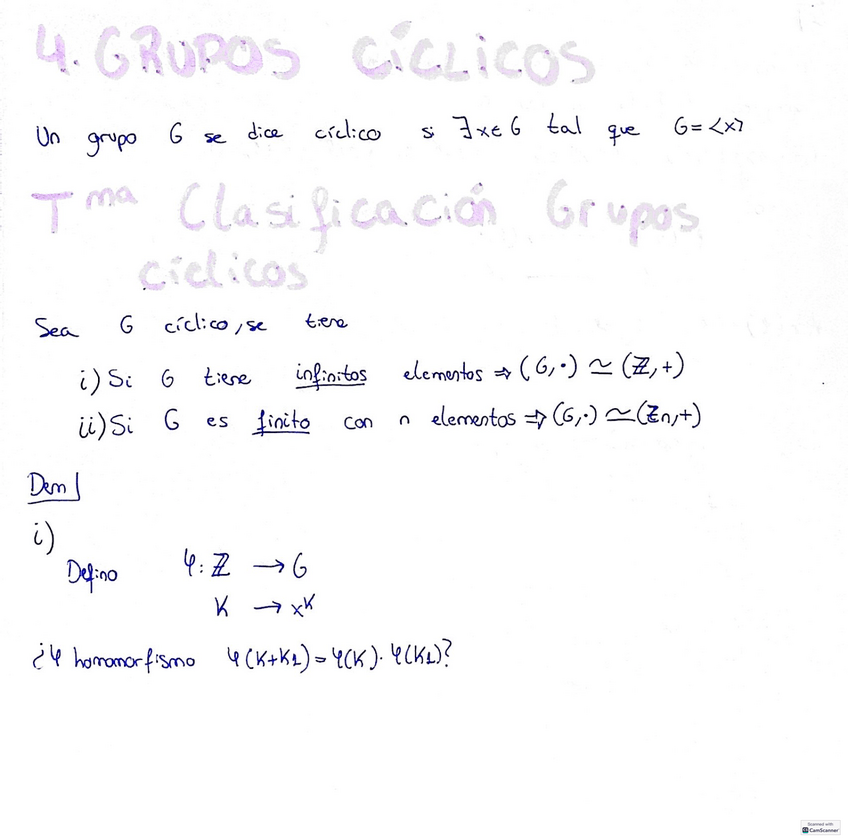 4. GRUPOS CÍCLICOS
Un grupo G se dice cíclico si ∃x∈G tal que G=<x>
Tma Clasificación Grupos
cíclicos
Sea G cíclico, se tiene
i) Si G tiene infinitos elementos ⇒ (G,·) ≃ (ℤ,+)
ii) Si G es finito con n elementos ⇒ (G,·) ≃ (ℤn,+)
Dem
i)
Defino φ: ℤ → G
K → x^K
¿φ homomorfismo φ(K+K1) = φ(K)·φ(K1)?
Scanned with
CamScanner